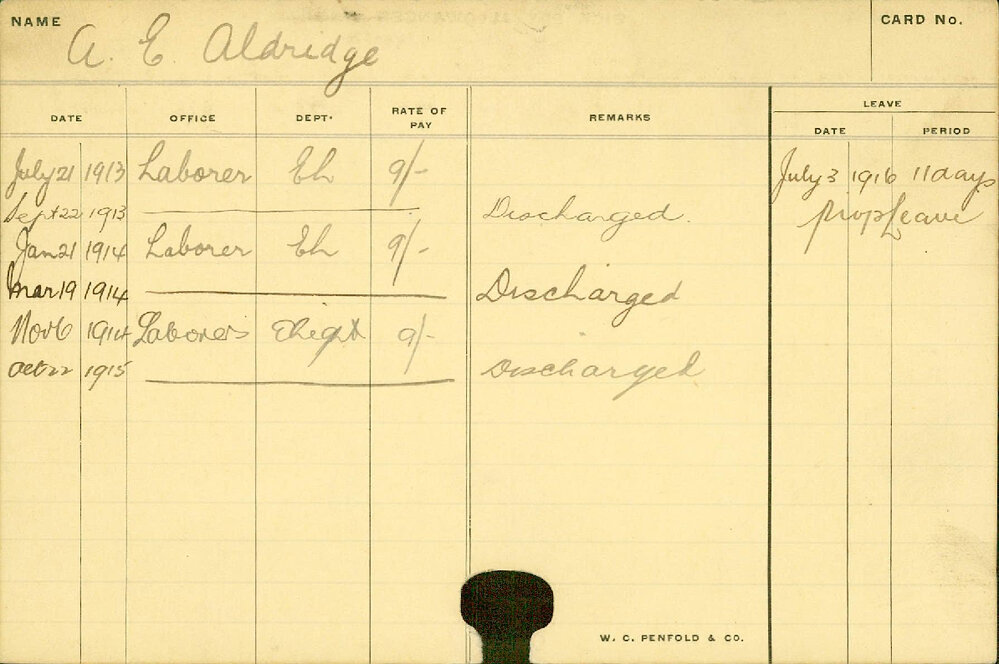 NAME A. E. Aldridge CARD No.
DATE OFFICE DEPT. RATE OF PAY REMARKS LEAVE DATE PERIOD
July 21 1913 Laborer Eh 9/- July 3 1916 11 days
Sept 22 1913 Discharged. prop Leave
Jan 21 1914 Laborer Eh 9/-
Mar 19 1914 Discharged
Nov 6 1914 Laborers 9/-
Oct 22 1915 Discharged
W. C. PENFOLD & CO.